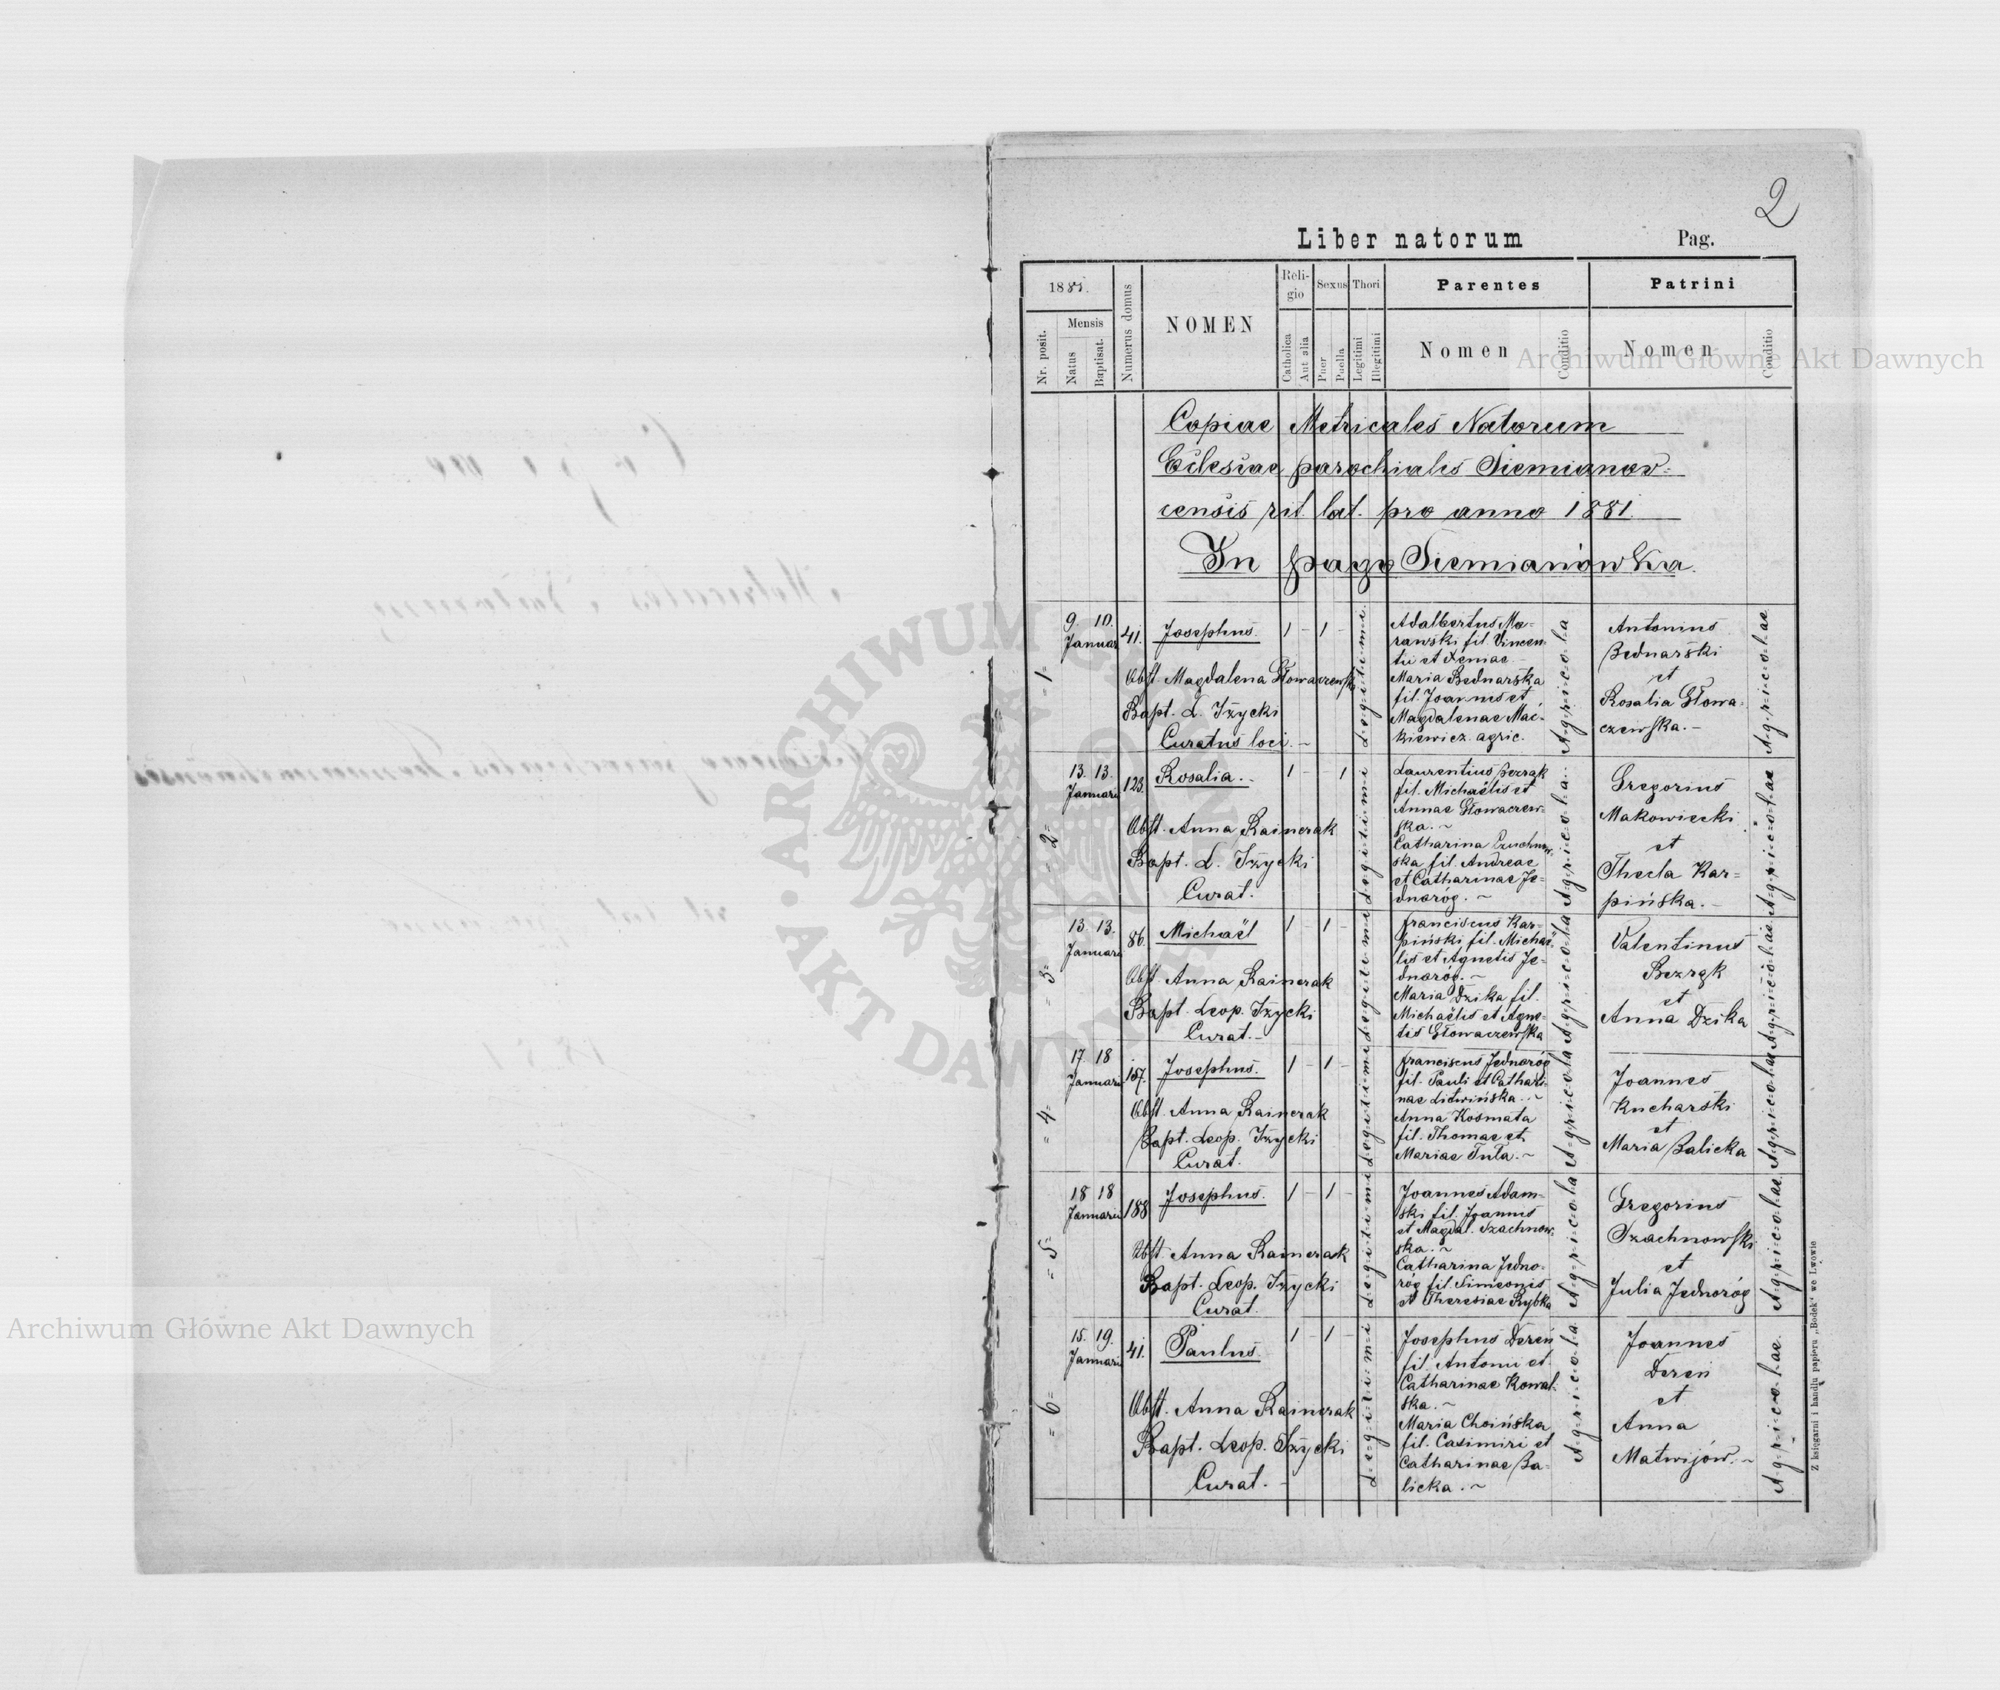 2
Liber natorum Pag.
1881.
Nr. posit.
Mensis
Natus
Baptisat.
Numerus domus
NOMEN
Reli-
gio
Catholica
Aut alia
Sexus
Puer
Puella
Thori
Legitimi
Illegitimi
Parentes
Nomen
Conditio
Patrini
Nomen
Conditio
Copiae Metricales Natorum
Eclesiae parochialis Siemianow=
censis rit. lat. pro anno 1881.
In pago Siemianówka.
=1=
9. 10.
Januar
41.
Josephus.
1 - 1 -
Obst. Magdalena Głowaczewska
Bapt. L. Iżycki
Curatus loci. ~
Legitimi.
Adalbertus Mo-
rawski fil. Vincen-
tii et Xeniae
Maria Bednarska
fil. Joannis et
Magdalenae Mac-
kiewicz agric.
A=g=r=i=c=o=l=a
Antonius
Bednarski
et
Rosalia Głowa-
czewska. -
A=g=r=i=c=o=l=ae
=2=
13. 13.
Januarii
123.
Rosalia. -
1 - - 1
Obst. Anna Rainerak
Bapt. L. Iżycki
Curat.
Legitimi
Laurentius Bezrąk
fil. Michaëlis et
Annae Głowaczew-
ska. ~
Catharina
ska fil. Andreae
et Catharinae Je-
dnoróg. ~
A=g=r=i=c=o=l=a
Gregorius
Makowiecki
et
Thecla Kar=
pińska. -
A=g=r=i=c=o=l=ae
=3=
13. 13.
Januarii
86.
Michaël
1 - 1 -
Obst. Anna Rainerak
Bapt. Leop. Iżycki
Curat. -
Legitimi
Franciscus Kar-
piński fil. Michaë-
lis et Agnetis Je-
dnaróg. ~
Maria Dzika fil.
Michaëlis et Agne-
tis Głowaczewska
A=g=r=i=c=o=l=a
Valentinus
Bezrąk
et
Anna Dzika
A=g=r=i=c=o=l=ae
=4=
17. 18
Januarii
187.
Josephus.
1 - 1 -
Obst. Anna Rainerak
Bapt. Leop. Iżycki
Curat.
Legitimi
Franciscus Jednoróg
fil. Pauli et Cathari-
nae Litwińska. ~
Anna Kosmata
fil. Thomae et
Mariae Tuła. ~
A=g=r=i=c=o=l=a
Joannes
Kucharski
et
Maria Balicka
A=g=r=i=c=o=l=ae
=5=
18 18
Januarii
188
Josephus.
1 - 1 -
Obst. Anna Rainerak
Bapt. Leop. Iżycki
Curat.
Legitimi
Joannes Adam-
ski fil. Joannis
et Magdal. Szachnow-
ska. ~
Catharina Jedno-
róg fil. Simeonis
et Theresiae Rybka
A=g=r=i=c=o=l=a
Gregorius
Szachnowski
et
Julia Jednoróg
A=g=r=i=c=o=l=ae.
=6=
15. 19.
Januarii
41.
Paulus.
1 - 1 -
Obst. Anna Rainerak
Bapt. Leop. Iżycki
Curat. -
Legitimi
Josephus Dereń
fil. Antonii et
Catharinae Kowal-
ska. ~
Maria Choińska
fil. Casimiri et
Catharinae Ba-
licka. ~
A=g=r=i=c=o=l=a.
Joannes
Dereń
et
Anna
Matwijów. ~
A=g=r=i=c=o=l=ae.
Z księgarni i handlu papieru „Bodek“ we Lwowie
Archiwum Główne Akt Dawnych
Archiwum Główne Akt Dawnych
ARCHIWUM GŁÓWNE AKT DAWNYCH